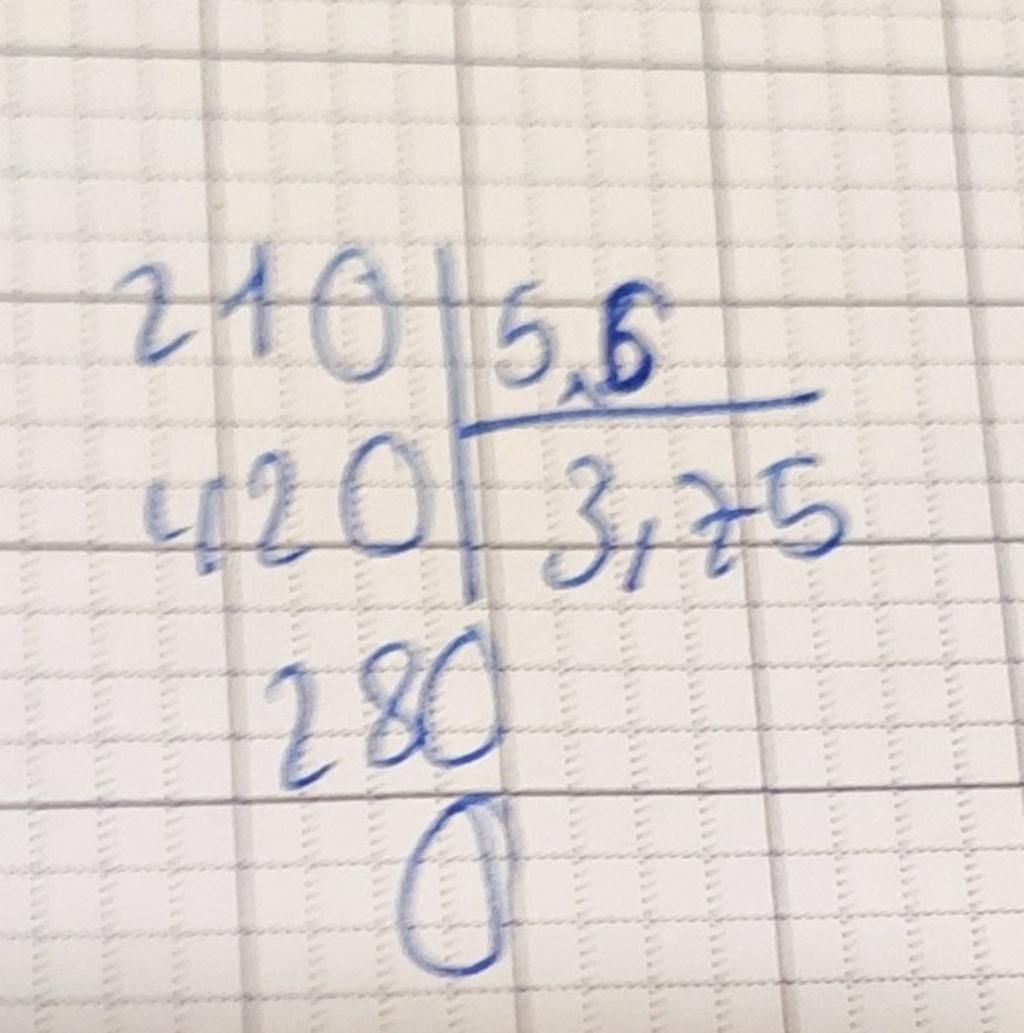 210 5,6
420 3,75
280
0